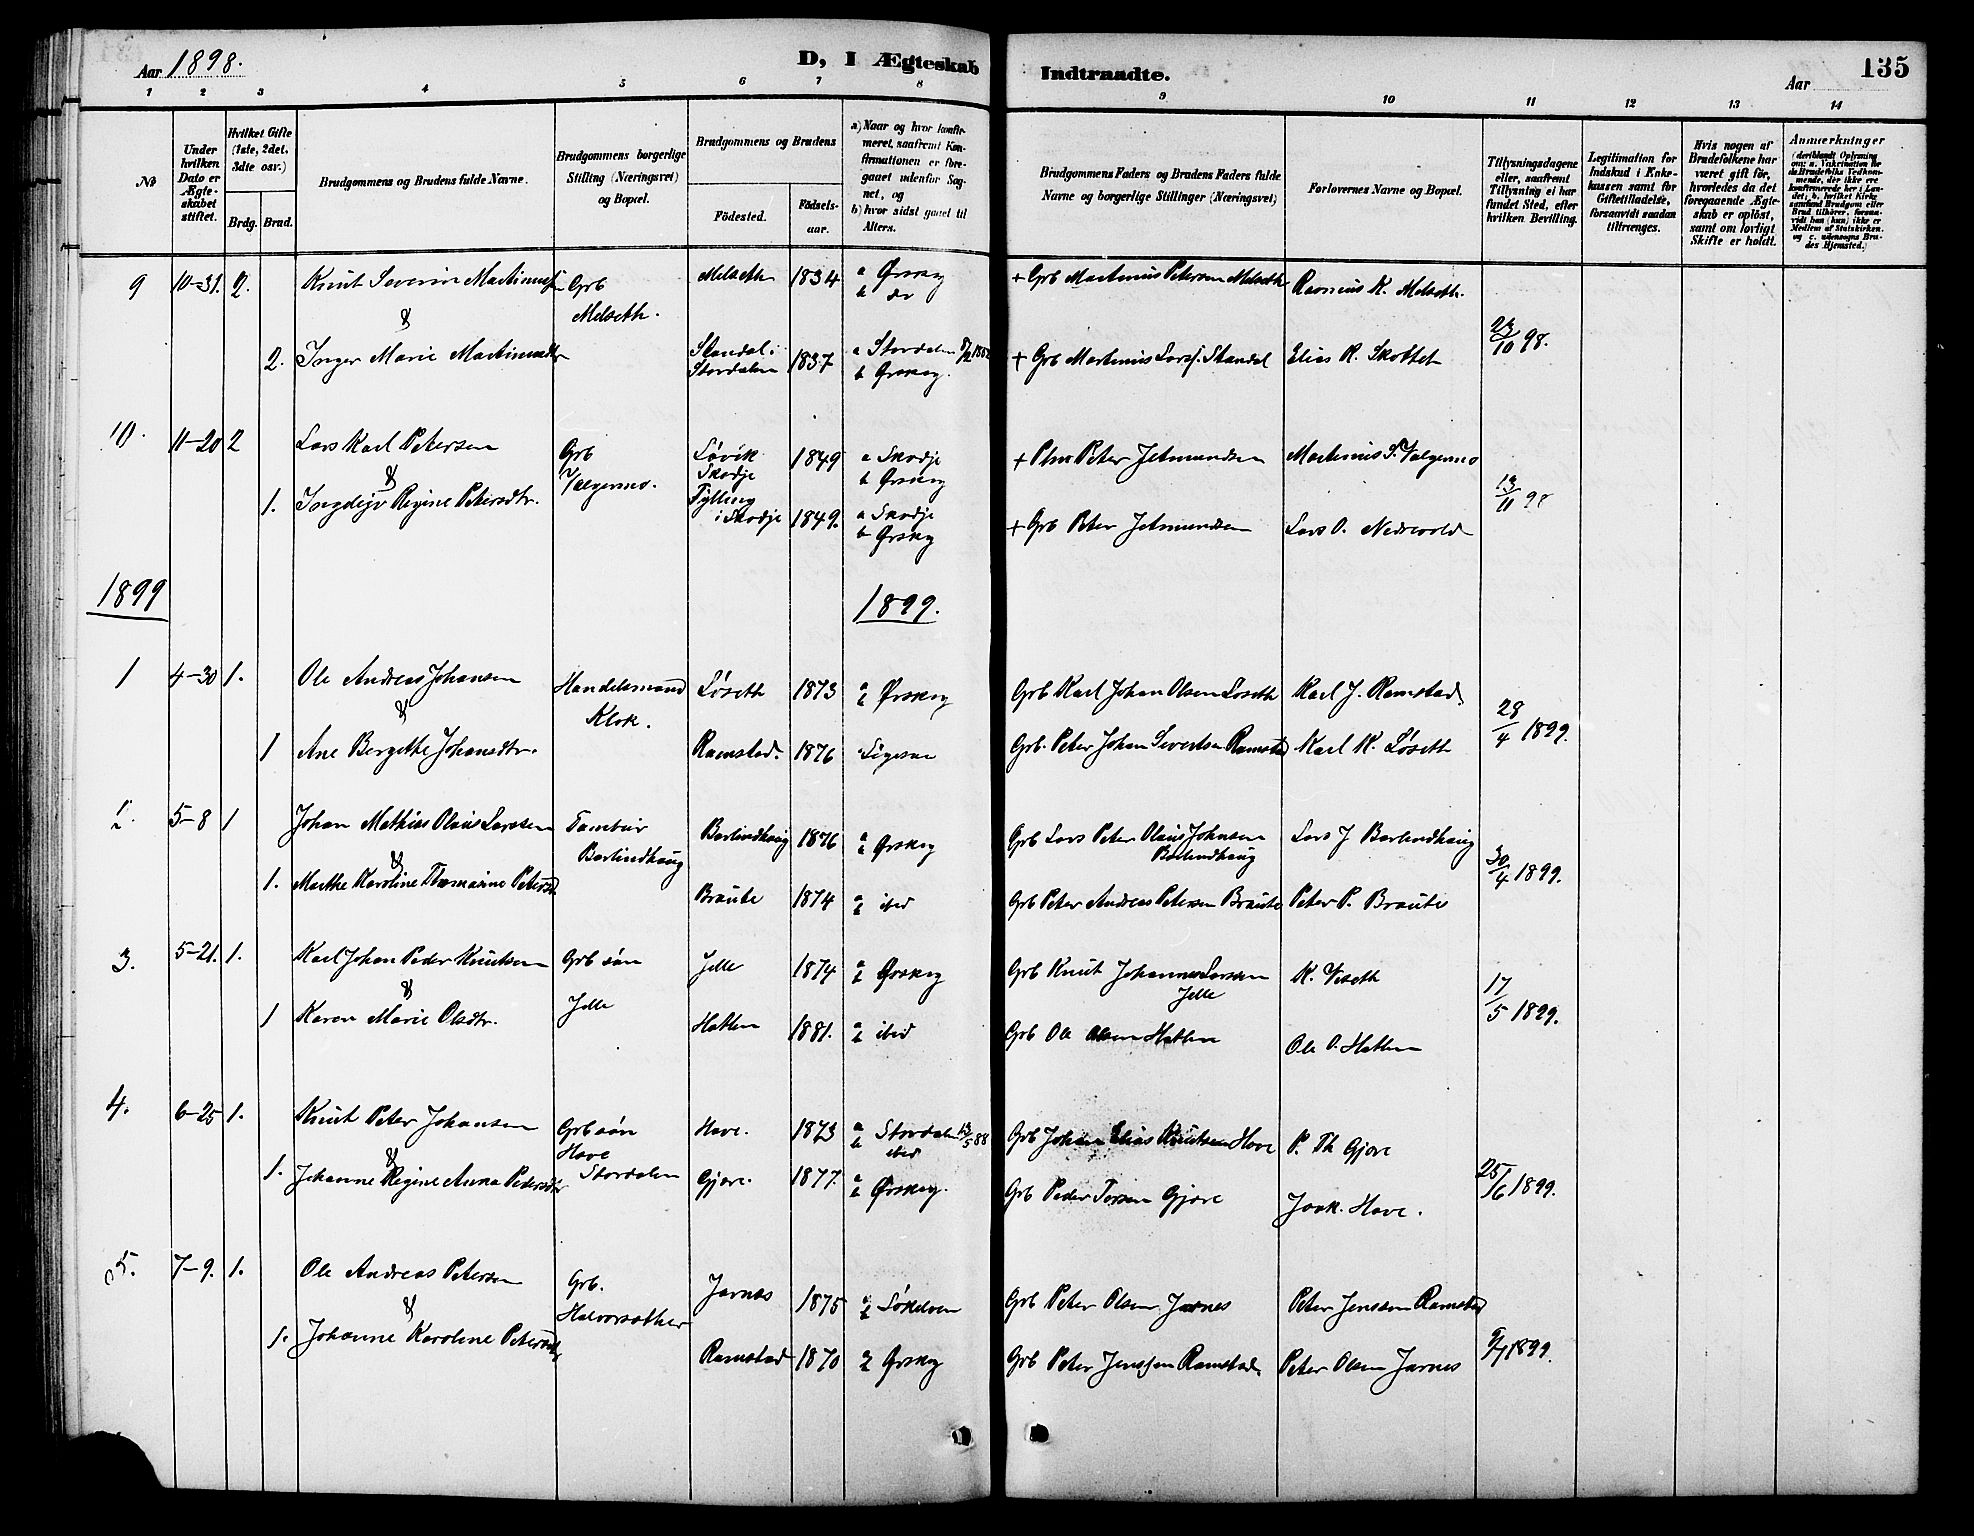 Aar 1898.
D, I Ægteskab Indtraadte.
Aar
135
1 2 3 4 5 6 7 8 9 10 11 12 13 14
№
Under hvilken Dato er Ægteskabet stiftet.
Hvilket Gifte (1ste, 2det, 3dte osv.)
Brdg. Brud.
Brudgommens og Brudens fulde Navne.
Brudgommens borgerlige Stilling (Næringsvei) og Bopæl.
Brudgommens og Brudens
Födested.
Födselsaar.
a) Naar og hvor konfirmeret, saafremt Konfirmationen er foregaaet udenfor Sognet, og
b) hvor sidst gaaet til Alters.
Brudgommens Faders og Brudens Faders fulde Navne og borgerlige Stillinger (Næringsvei)
Forlovernes Navne og Bopæl.
Tillysningsdagene eller, saafremt Tillysning ei har fundet Sted, efter hvilken Bevilling.
Legitimation for Indskud i Enkekassen samt for Giftetilladelse, forsaavidt saadan tiltrænges.
Hvis nogen af Brudefolkene har været gift för, hvorledes da det foregaaende Ægteskab er oplöst, samt om lovligt Skifte er holdt.
Anmærkninger
9 10-31. 2. Knut Severin Martinussen Grb Melseth. Melseth 1834 a Ørskog b do + Grb Martinus Petersen Melseth Rasmus K. Melseth.
&
2. Inger Marie Martinusdtr Standal i Stordalen 1837 a Stordalen b Ørskog. + Grb Martinus Larss. Standal Elias R. Skottet 23/10 98.
10. 11-20 2 Lars Karl Petersen Grb Valgermo. Løvik Skodje 1849 a Skodje b Ørskog + Peter Jetmundsen Martinus S. Valgermo
&
1. Regine Petersdtr. Fylling i Skodje 1849. a Skodje b Ørskog + Grb Peter Jetmundsen Lars O. Nedrevold 13/11 98
1899 1899.
1 4-30 1. Ole Andreas Johansen Handelsmand Klok. Løseth 1873 a b Ørskog Grb Karl Johan Olsen Løseth Karl J. Ramstad.
&
1 Ane Bergithe Johansdtr. Ramstad. 1876 Ligesaa Grb. Peter Johan Sivertsen Ramstad Karl K. Løseth 28/4 1899.
5-8 1 Johan Mathias Olaus Larssen Tambur Barlindhaug Barlindhaug 1876 a b Ørskog Grb Lars Peter Olaus Johnsen Barlindhaug Lars J Barlindhaug
&
1. Marthe Karoline Thomasine Petersd Braute 1874 a b ibid Grb Peter Andreas Petersen Braute Peter P. Braute 30/4 1899.
3. 5-21. 1. Karl Johan Peder Knutsen Grb søn Jelle Jelle 1874 a b Ørskog Grb Knut Johannes Larssen Jelle K. Viseth
&
1 Karen Marie Olsdtr. Hatlen 1881. a b ibid Grb Ole Olsen Hatlen Ole O. Hatlen 17/5 1899.
4. 6-25 1. Knut Peter Johansen Grb søn Hove Stordalen Hove. 1873 a Stordalen 13/5 88 b ibid Grb Johan Elias Knutsen Hove P. Th Gjøre
&
1. Johanne Regine Anna Pedersdtr Gjøre. 1877. a b Ørskog. Grb Peder Torsen Gjøre Jook. Hove. 25/6 1899.
5. 7-9. 1. Ole Andreas Petersen Grb. Halvorsæther Jarnes 1875 a b Søkelven Grb Peter Olsen Jarnes Peter Jenssen Ramstad
&
1. Johanne Karoline Petersdtr Ramstad 1870 a b Ørskog Grb Peter Jenssen Ramstad. Peter Olsen Jarnes 9/7 1899.